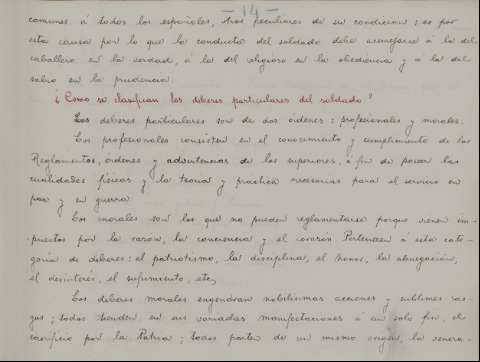 - 14 -
comunes á todos los españoles, otros peculiares de su condicion; es por
esta causa por lo que la conducta del soldado debe asemejarse á la del
caballero en la verdad, á la del religioso en la obediencia y á la del
sabio en la prudencia.
¿Como se clasifican los deberes particulares del soldado?
Los deberes particulares son de dos órdenes: profesionales y morales.
Los profesionales consisten en el conocimiento y cumplimiento de los
Reglamentos, órdenes y advertencias de los superiores, á fin de poseer las
cualidades físicas y la teoria y practica necesarias para el servicio en
paz y en guerra.
Los morales son los que no pueden reglamentarse porque vienen im-
puestos por la razon, la conciencia y el corazon. Pertenecen á esta cate-
goria de deberes: el patriotismo, la disciplina, el honor, la abnegación,
el desinterés, el sufrimiento, etc,
Los deberes morales engendran nobilísimas acciones y sublimes ras-
gos; todos tienden en sus variadas manifestaciones á un solo fin, el
sacrificio por la Patria; todos parten de un mismo origen, la venera-